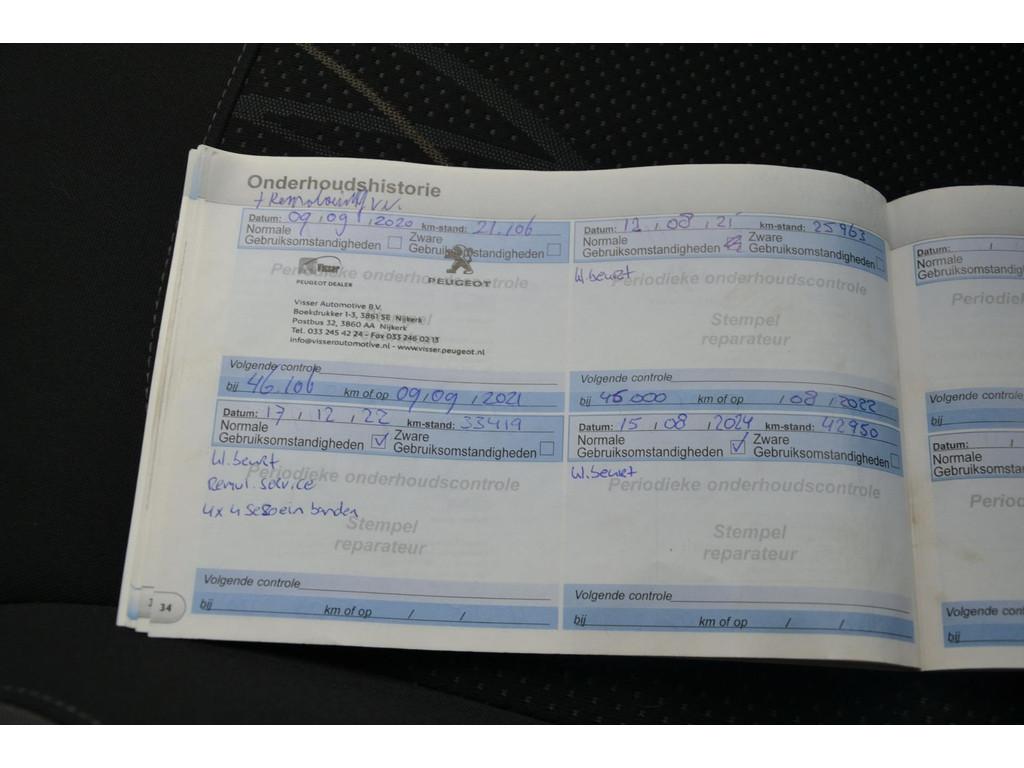 Onderhoudshistorie
Datum: 09 / 09 / 2020 km-stand: 21.106
Normale Gebruiksomstandigheden
Zware Gebruiksomstandigheden
Periodieke onderhoudscontrole
Visser
PEUGEOT DEALER
PEUGEOT
Visser Automotive B.V.
Boekdrukker 1-3, 3861 SE Nijkerk
Postbus 32, 3860 AA Nijkerk
Tel. 033 245 42 24 - Fax 033 246 02 13
info@visserautomotive.nl - www.visser.peugeot.nl
Volgende controle
bij 46.106 km of op 09/09/2021
Datum: 12 / 08 / 21 km-stand: 25963
Normale Gebruiksomstandigheden
Zware Gebruiksomstandigheden
W.beurt
Periodieke onderhoudscontrole
Stempel
reparateur
Volgende controle
bij 45.000 km of op / 08 / 2022
Datum: 17 / 12 / 22 km-stand: 33419
Normale Gebruiksomstandigheden
Zware Gebruiksomstandigheden
W.beurt
Periodieke onderhoudscontrole
Remul. Service
4x 4 Seizoen banden
Stempel
reparateur
Volgende controle
bij km of op / /
Datum: 15 / 08 / 2024 km-stand: 42950
Normale Gebruiksomstandigheden
Zware Gebruiksomstandigheden
W.beurt
Periodieke onderhoudscontrole
Stempel
reparateur
Volgende controle
bij km of op / /
34
Datum: /
Normale
Gebruiksomstandig
Periodiek
Volgende controle
bij
Datum: /
Normale
Gebruiksomsta
Period
Volgende cont
bij